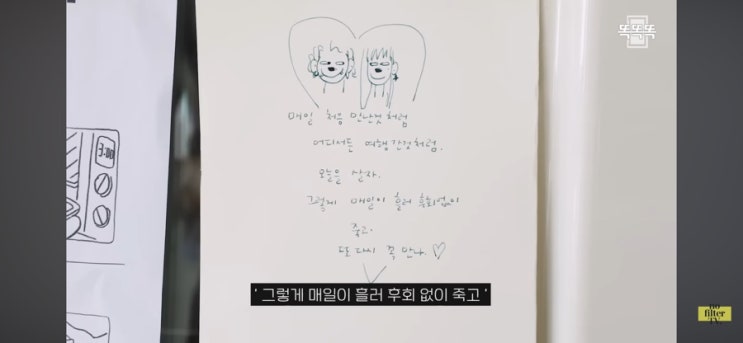 똑똑똑
3:00
매일 처음 만난것처럼
어디서든 여행간것처럼.
오늘을 살자.
그렇게 매일이 흘러 후회없이
죽고.
또 다시 꼭 만나. ♡
' 그렇게 매일이 흘러 후회 없이 죽고 '
no
filter
TV.